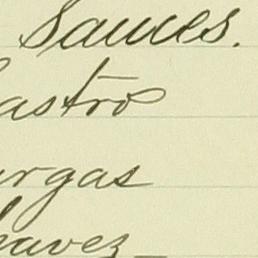 Sauces.
astro
rgas
avez